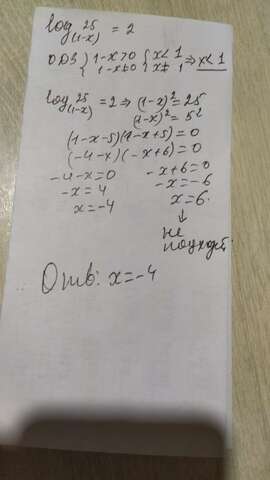 log₍₁₋ₓ₎ 25 = 2
ОДЗ } 1-x>0 { x<1
1-x≠0 { x≠1 ⇒ x<1
log₍₁₋ₓ₎ 25 = 2 ⇒ (1-x)² = 25
(1-x)² = 5²
(1-x-5)(1-x+5)=0
(-4-x)(-x+6)=0
-4-x=0 -x+6=0
-x=4 -x=-6
x=-4 x=6.
↓
не
подходит.
Отв: x=-4